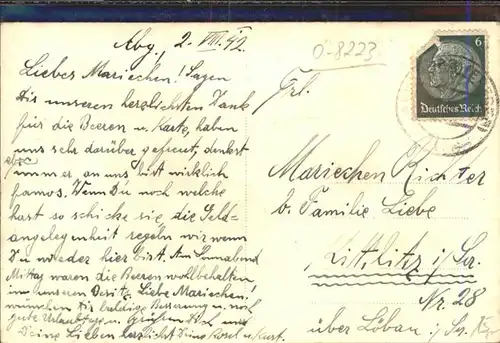 Abg. 2. VIII. 42.
Liebes Mariechen! Sagen
Dir unseren herzlichsten Dank
für die Beeren u. Karte, haben
uns sehr darüber gefreut, denkst
immer an uns bist wirklich
famos. Wenn Du noch welche
hast so schicke sie, die Geld-
angelegenheit regeln wir wenn
Du wieder hier bist. Am Sonnabend
Mittag waren die Beeren wohlbehalten
in unseren Besitz. Liebe Mariechen!
wünschen Dir baldige Besserung u. noch
gute Urlaubstage u. Grüßen Dich und
Deine Lieben herzlichst Deine Rosel u. Kurt.
0-8223
6
Deutsches Reich
Frl.
Mariechen Richter
b. Familie Liebe
Kittlitz i/Sa.
Nr. 28
über Löbau i/Sa.